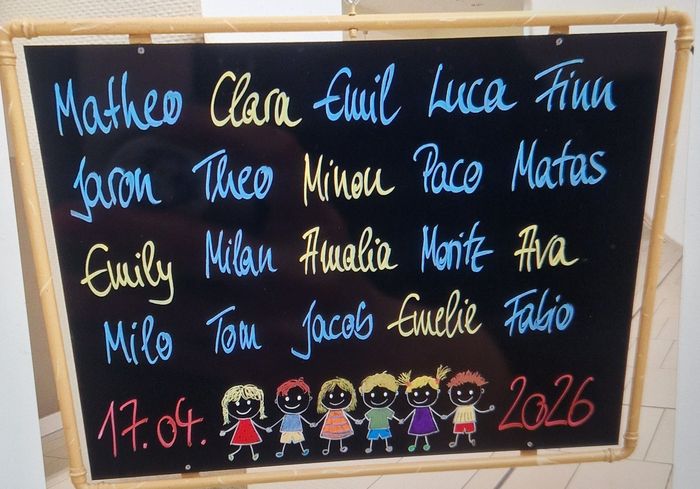 Matheo Clara Emil Luca Finn
Jaron Theo Minou Paco Matas
Emily Milan Amalia Moritz Ava
Milo Tom Jacob Emelie Fabio
17.04. 2026